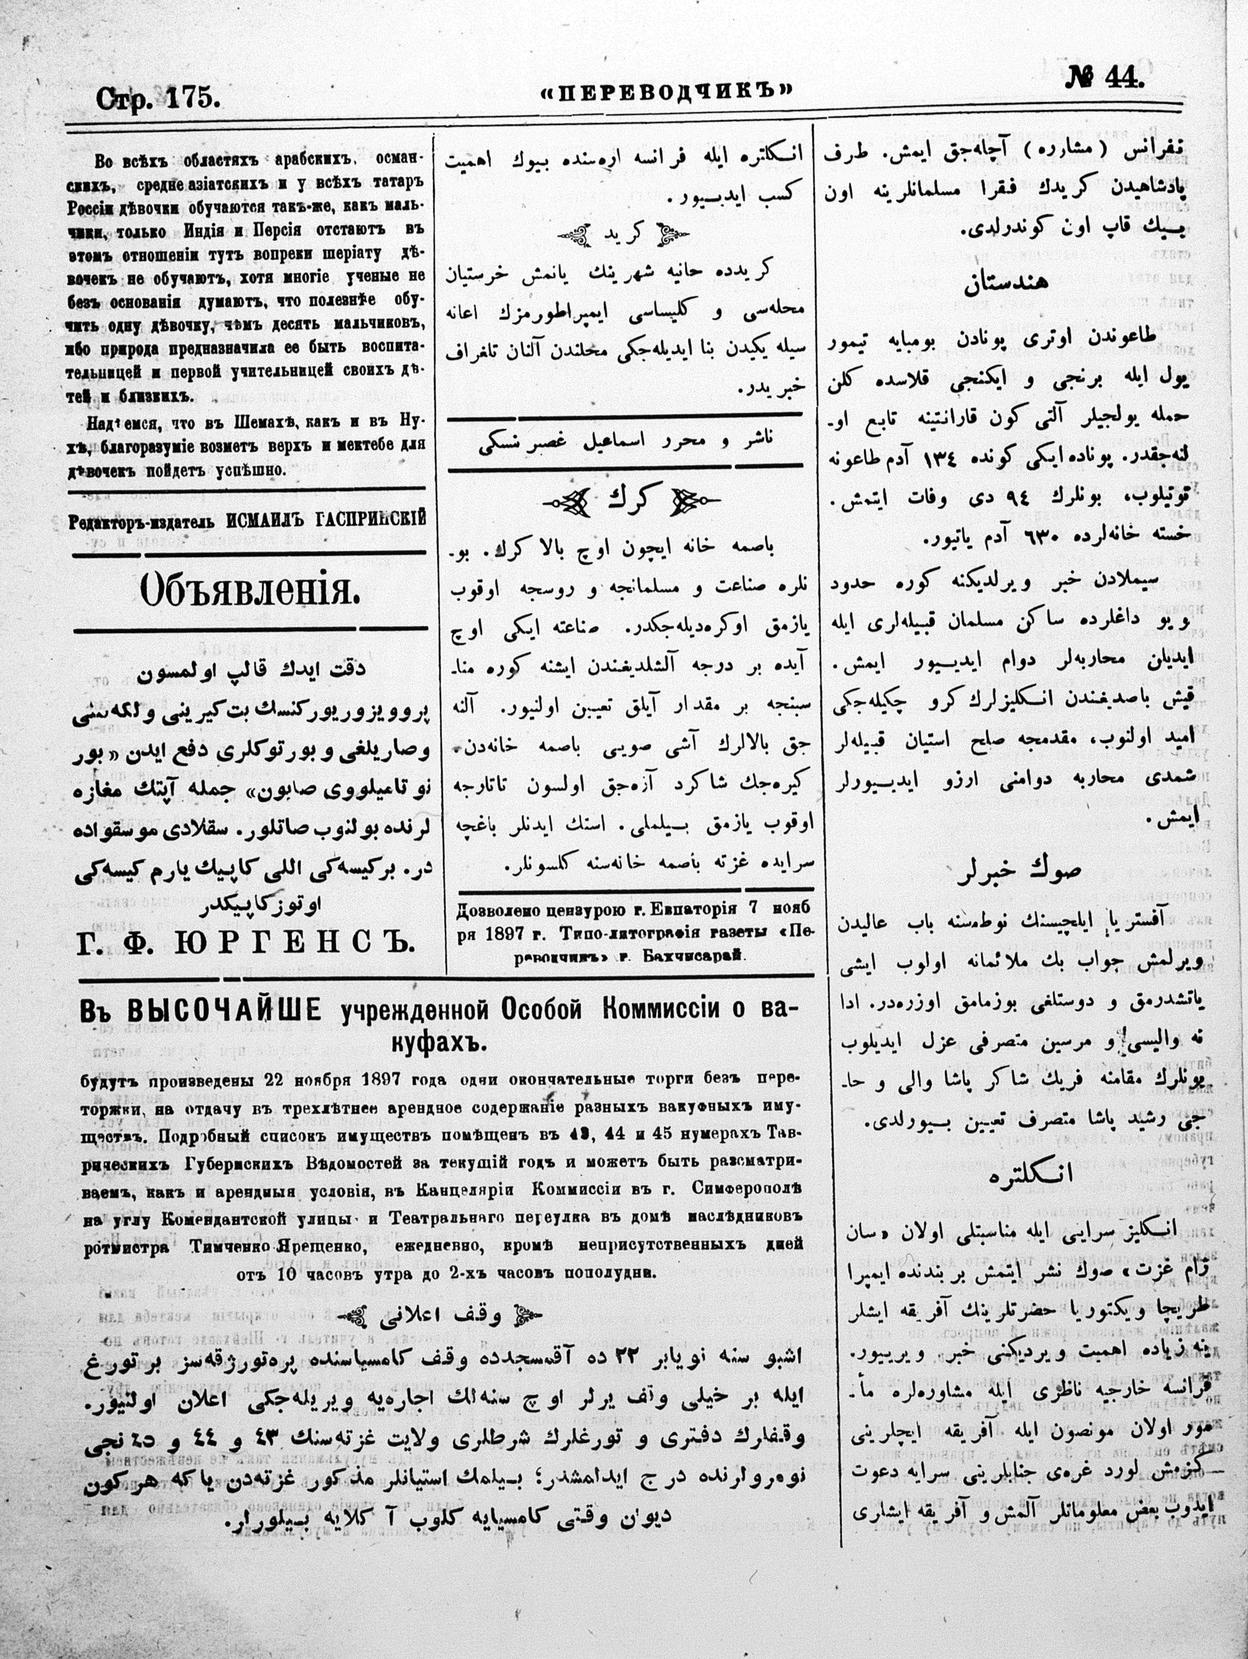 Стр. 175.
«ПЕРЕВОДЧИКЪ»
№ 44.
Во всѣхъ областяхъ арабскихъ, осман-
скихъ, средне азіатскихъ и у всѣхъ татаръ
Россіи дѣвочки обучаются такъ-же, какъ маль-
чики, только Индія и Персія отстаютъ въ
этомъ отношеніи тутъ вопреки шеріату дѣ-
вочекъ не обучаютъ, хотя многіе ученые не
безъ основанія думаютъ, что полезнѣе обу-
чить одну дѣвочку, чѣмъ десять мальчиковъ,
ибо природа предназначила ее быть воспита-
тельницей и первой учительницей своихъ дѣ-
тей и близкихъ.
Надѣемся, что въ Шемахѣ, какъ и въ Ну-
хѣ, благоразуміе возметъ верхъ и мектебе для
дѣвочекъ пойдетъ успѣшно.
Редакторъ-издатель ИСМАИЛЪ ГАСПРИНСКІЙ
Объявленія.
دقت ايدك قالپ اولمسون
پروويزور يوركنسك بت كيريني و لكه سنى
وصاريلغى و بورتوكلرى دفع ايدن «بور
نو تاميلووى صابون» جمله آپتك مغازه
لرنده بولنوب صاتلور. سقلادى موسقواده
در. بركيسه‌كى اللى كاپيك يارم كيسه‌كى
اوتوز كاپيكدر
Г. Ф. ЮРГЕНСЪ.
انكلتره ايله فرانسه اره‌سنده بيوك اهميت
كسب ايدبيور.
كريد
كريدده حانيه شهرينك يانمش خرستيان
محله‌سى و كليساسى ايمپراطورمزك اعانه
سيله يكيدن بنا ايديله‌جكى محلندن آلنان تلغراف
خبريدر.
ناشر و محرر اسماعيل غصپرنسكى
كرك
باصمه خانه ايچون اوچ بالا كرك. بو-
نلره صناعت و مسلمانجه و روسجه اوقوب
يازمق اوكره‌ديله‌جكدر. صناعته ايكى اوچ
آيده بر درجه آلشلديغندن ايشنه كوره منا-
سبنجه بر مقدار آيلق تعيين اولنيور. آلنه
جق بالالرك آشى صويى باصمه خانه‌دن.
كيره‌جك شاكرد آزه‌جق اولسون تاتارجه
اوقوب يازمق بيلملى. استك ايدنلر باغچه
سرايده غزته باصمه خانه‌سنه كلسونلر.
Дозволено цензурою г. Евпаторія 7 нояб
ря 1897 г. Типо-литографія газеты «Пе-
реводчикъ» г. Бахчисарай.
نفرانس (مشاوره) آچله‌جق ايمش. طرف
پادشاهيدن كريدك فقرا مسلمانلرينه اون
بيك قاپ اون كوندرلدى.
هندستان
طاعوندن اوترى پونادن بومبايه تيمور
يول ايله برنجى و ايكنجى قلاسده كلن
جمله يولجيلر آلتى كون قارانتينه تابع او-
لنه‌جقدر. پوناده ايكى كونده ١٣٤ آدم طاعونه
توتيلوب، بونلرك ٩٤ دى وفات ايتمش.
خسته خانه‌لرده ٦٣٠ آدم ياتيور.
سيملادن خبر ويرلديكنه كوره حدود
و بو داغلرده ساكن مسلمان قبيله‌لرى ايله
ايديلن محاربه‌لر دوام ايديبور ايمش.
قيش باصديغندن انكليزلرك كرو چكيله‌جكى
اميد اولنوب، مقدمجه صلح استيان قبيله‌لر
شمدى محاربه دوامنى ارزو ايديبورلر
ايمش.
صوك خبرلر
آفستريا ايلچيسنك نوطه‌سنه باب عاليدن
ويرلمش جواب بك ملائمانه اولوب ايشى
ياتشدرمق و دوستلغى بوزمامق اوزره‌در. ادا
نه واليسى و مرسين متصرفى عزل ايديلوب
بونلرك مقامنه فريك شاكر پاشا والى و حا-
جى رشيد پاشا متصرف تعيين بيورلدى.
انكلتره
انكليز سرايى ايله مناسبتلى اولان «سان
ژام غزت» صوك نشر ايتمش بر بندنده ايمپرا
طريچا ويكتوريا حضرتلرينك آفريقه ايشلر
ينه زياده اهميت ويرديكنى خبر ويريبور.
فرانسه خارجيه ناظرى ايله مشاوره‌لره مأ-
مور اولان مونصون ايله آفريقه ايچلرينى
كزمش لورد غره‌ى جنابلرينى سرايه دعوت
ايدوب بعض معلوماتلر آلمش و آفريقه ايشلرى
Въ ВЫСОЧАЙШЕ учрежденной Особой Коммиссіи о ва-
куфахъ.
будутъ произведены 22 ноября 1897 года одни окончательные торги безъ пере-
торжки, на отдачу въ трехлѣтнее арендное содержаніе разныхъ вакуфныхъ иму-
ществъ. Подробный списокъ имуществъ помѣщенъ въ 43, 44 и 45 нумерахъ Тав-
рическихъ Губернскихъ Вѣдомостей за текущій годъ и можетъ быть разсматри-
ваемъ, какъ и арендныя условія, въ Канцеляріи Коммиссіи въ г. Симферополѣ
на углу Комендантской улицы и Театральнаго переулка въ домѣ наслѣдниковъ
ротмистра Тимченко-Ярещенко, ежедневно, кромѣ неприсутственныхъ дней
отъ 10 часовъ утра до 2-хъ часовъ пополудни.
وقف اعلانى
اشبو سنه نويابر ٢٢ ده آقمسجدده وقف كامسياسنده پره‌تورژقه‌سز بر تورغ
ايله بر خيلى وقف يرلر اوچ سنه‌لك اجاره‌يه ويريله‌جكى اعلان اولنيور.
وقفلرك دفترى و تورغلرك شرطلرى ولايت غزته‌سنك ٤٣ و ٤٤ و ٤٥ نجى
نومرولرنده درج ايدلمشدر؛ بيلمك استيانلر مذكور غزته‌دن ياكه هر كون
ديوان وقتى كامسيايه كلوب آ كلايه بيلورلر.